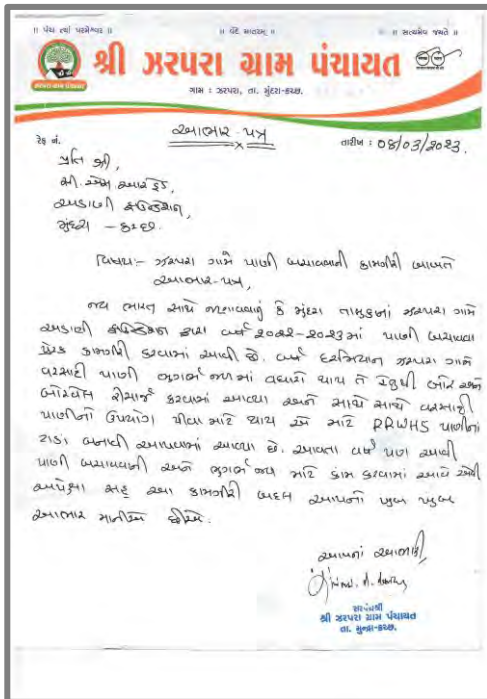 ॥ પંચ ત્યાં પરમેશ્વર ॥ ॥ વંદે માતરમ્ ॥ ॥ સત્યમેવ જયતે ॥
શ્રી ઝરપરા ગ્રામ પંચાયત
ગામ : ઝરપરા, તા. મુંદરા-કચ્છ.
આભાર-પત્ર
રેફ નં. તારીખ : 08/03/2023.
પ્રતિ શ્રી,
સી.એસ.આર હેડ,
અદાણી ફાઉન્ડેશન,
મુંદરા - કચ્છ
વિષય:- ઝરપરા ગામે પાણી બચાવવાની કામગીરી બાબતે
આભાર-પત્ર,
જય ભારત સાથે જણાવવાનું કે મુંદરા તાલુકાનાં ઝરપરા ગામે
અદાણી ફાઉન્ડેશન દ્વારા વર્ષ 2022-2023માં પાણી બચાવવા
કામગીરી કરવામાં આવી છે. વર્ષ દરમિયાન ઝરપરા ગામે
વરસાદી પાણી ભુગર્ભ જળમાં વધારો થાય તે હેતુથી બોર અને
બોરવેલ રીચાર્જ કરવામાં આવ્યા અને સાથે સાથે વરસાદી
પાણીનો ઉપયોગ પીવા માટે થાય એ માટે RRWHS પાણીનાં
ટાકા બનાવી આપવામાં આવ્યા છે. આવતા વર્ષે પણ આવી
પાણી બચાવવાની અને ભુગર્ભ જળ માટે કામ કરવામાં આવે એવી
અપેક્ષા સહ આ કામગીરી બદલ આપનો ખુબ ખુબ
આભાર માનીએ છીએ.
આપનાં આભારી,
સરપંચશ્રી
શ્રી ઝરપરા ગ્રામ પંચાયત
તા. મુન્દ્રા-કચ્છ.